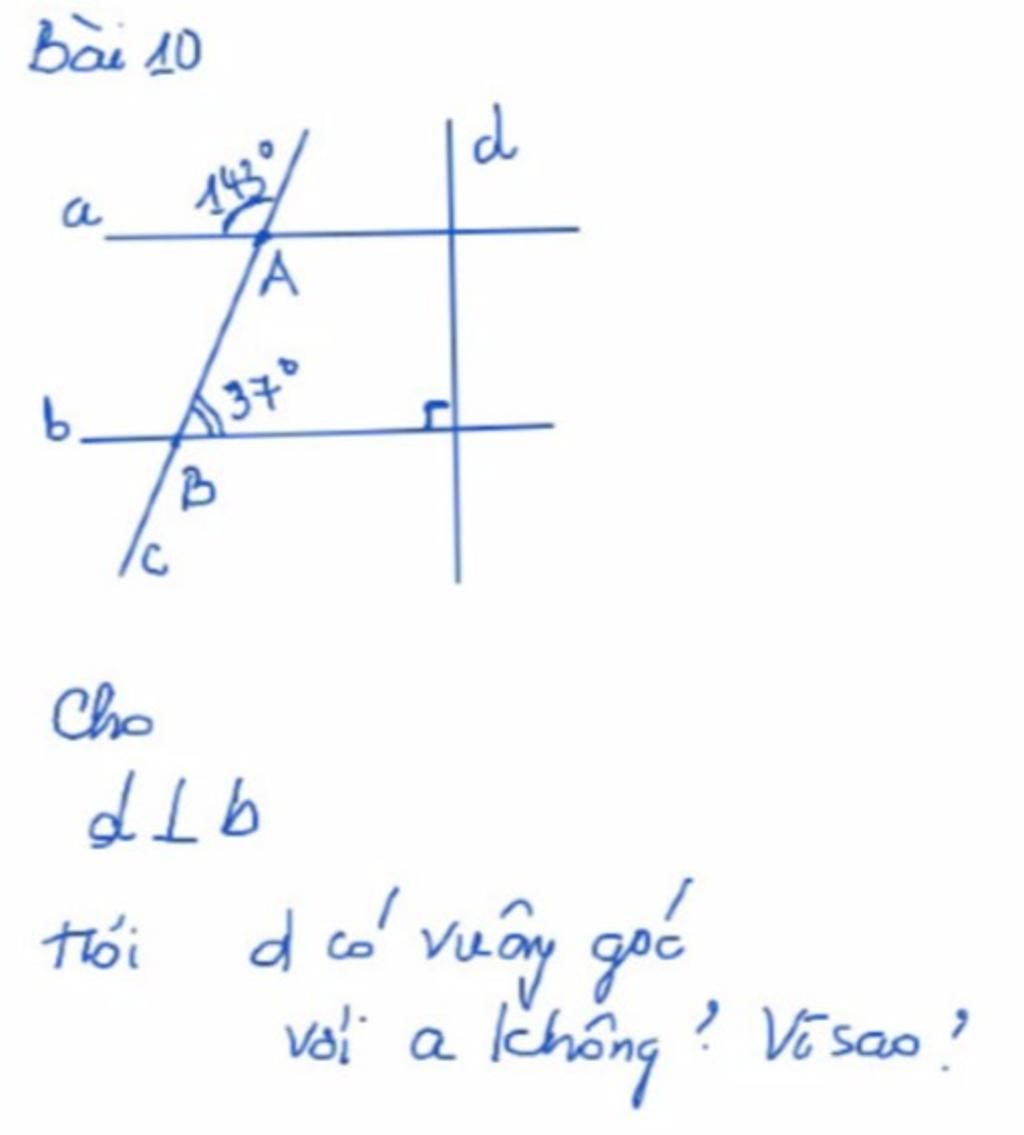 Bài 10
d
143°
a
A
37°
b
B
c
Cho
d ⊥ b
Hỏi d có vuông góc
với a không? Vì sao?